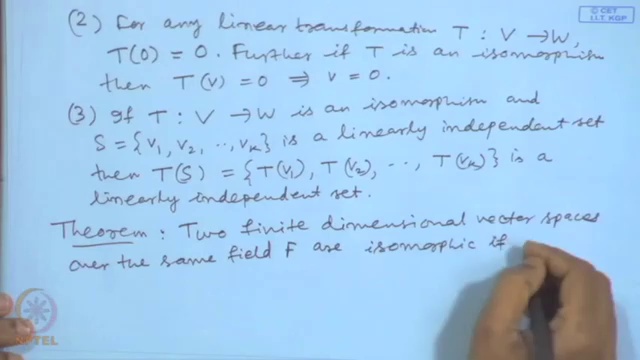 © CET
I.I.T. KGP
(2) For any linear transformation T : V → W,
T(0) = 0. Further if T is an isomorphism
then T(v) = 0 ⇒ v = 0.
(3) If T : V → W is an isomorphism and
S = {v₁, v₂, .., vₖ} is a linearly independent set
then T(S) = {T(v₁), T(v₂), .., T(vₖ)} is a
linearly independent set.
Theorem : Two finite dimensional vector spaces
over the same field F are isomorphic if
NPTEL